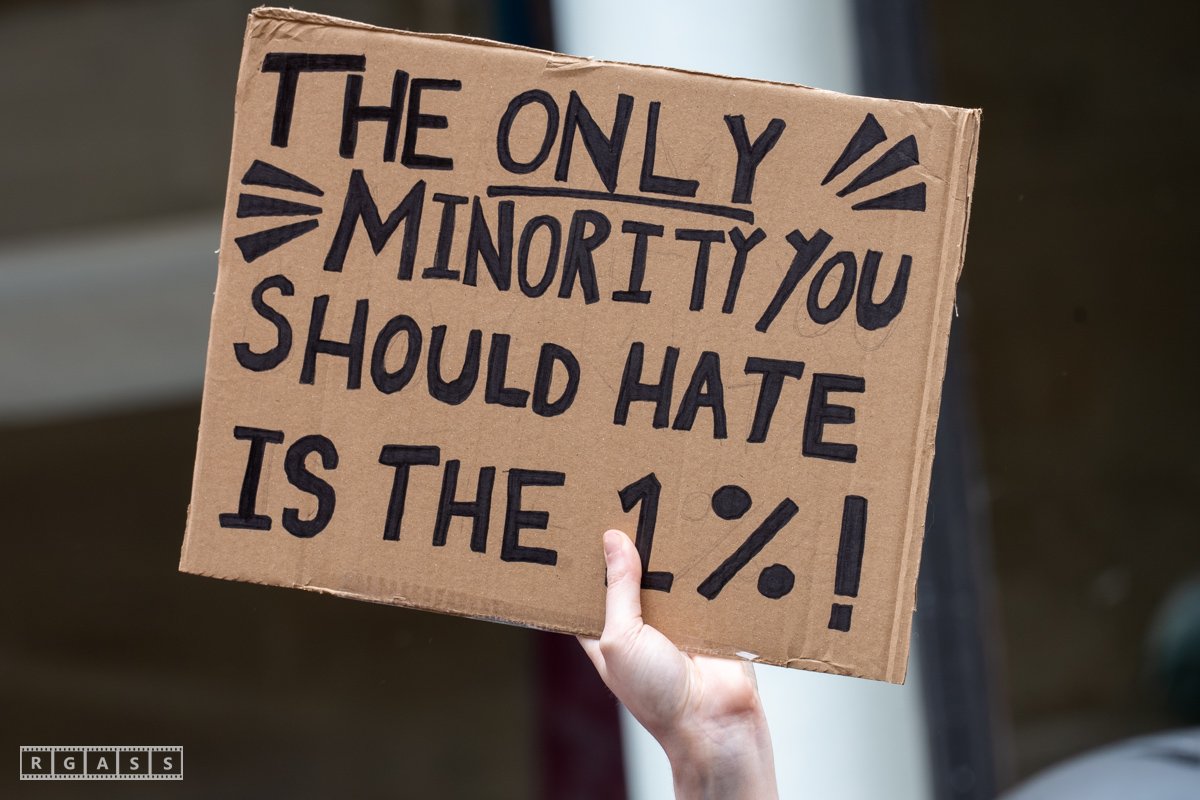 THE ONLY
MINORITY YOU
SHOULD HATE
IS THE 1%!
RGASS